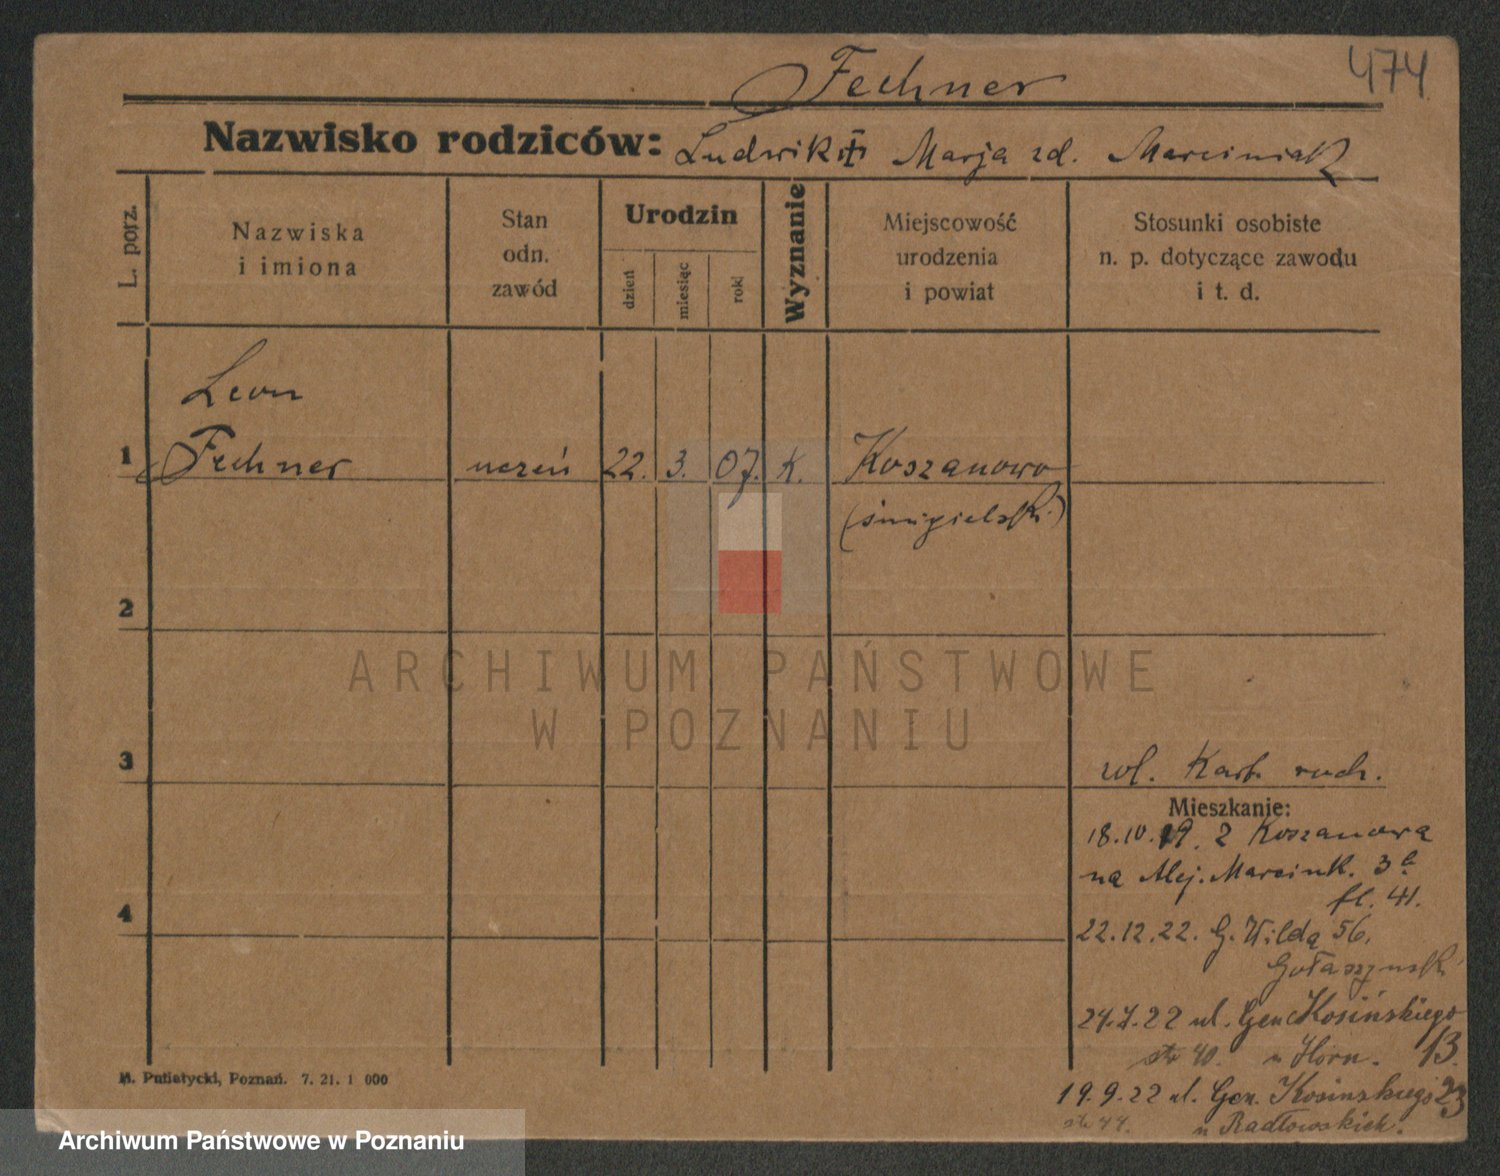 Fechner
474
Nazwisko rodziców: Ludwik Marja zd. Marciniak
L. porz.
Nazwiska
i imiona
Stan
odn.
zawód
Urodzin
dzień
miesiąc
rok
Wyznanie
Miejscowość
urodzenia
i powiat
Stosunki osobiste
n. p. dotyczące zawodu
i t. d.
Leon
1 Fechner uczeń 22. 3. 07. K. Koszanowo
(śmigielski)
2
ARCHIWUM PAŃSTWOWE
W POZNANIU
3
Mieszkanie:
18.10.19. z Koszanowa
na Alej. Marcink. 3
4
22.12.22. G. Wilda 56.
Gołaszyński
24.7.22 ul. Gen Kosińskiego
str 40. u Horn. 13.
19.9.22 ul. Gen. Kosinskiego 23
str 44. u Radłowskich.
M. Putiatycki, Poznań. 7. 21. 1 000
Archiwum Państwowe w Poznaniu